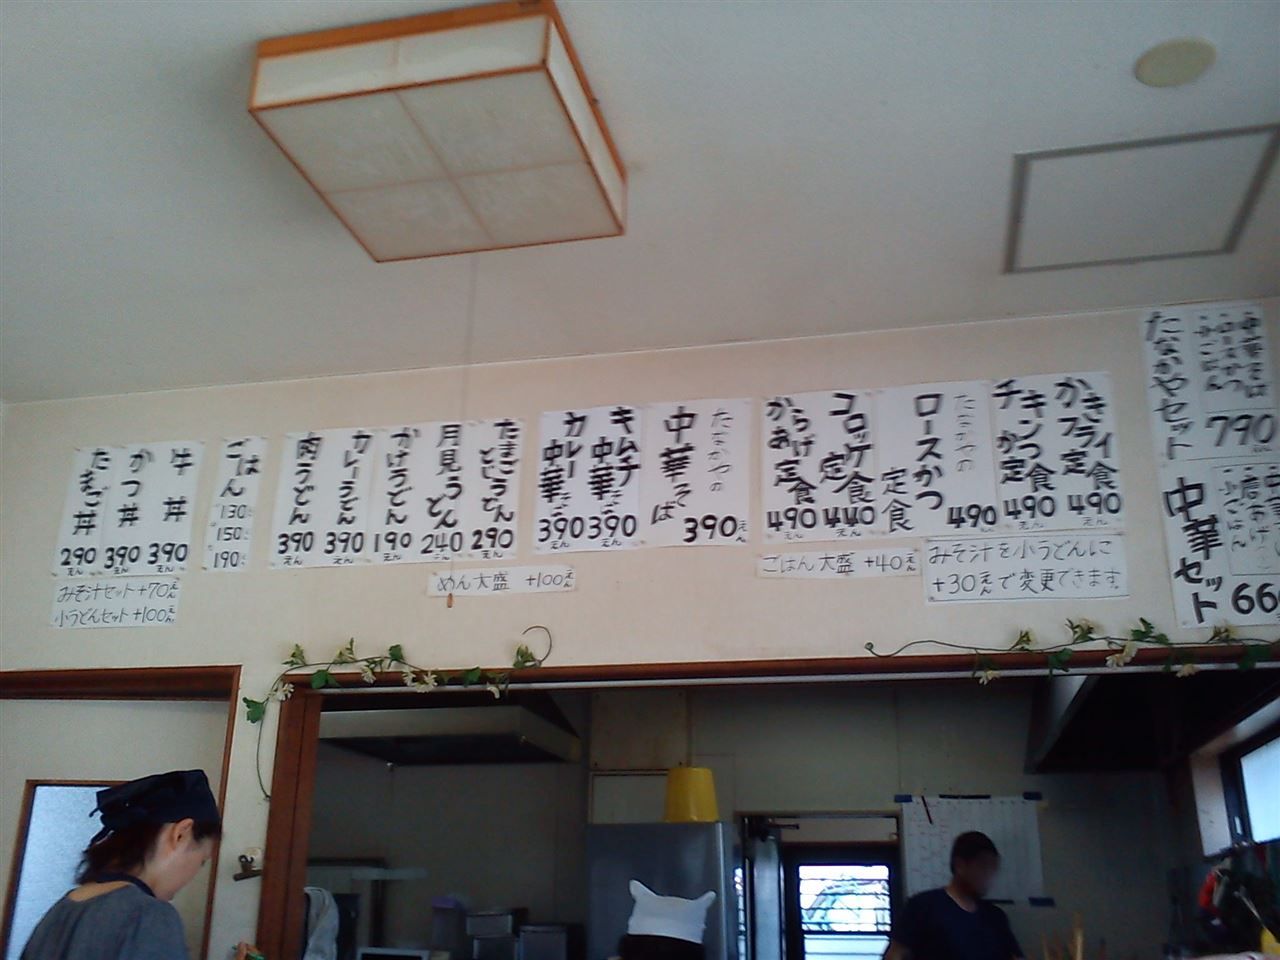 たなかやセット
・中華そば
・ロースかつ
・小ごはん
790
中華セット
・小ごはん
かきフライ定食
490えん
チキンかつ定食
490えん
たなかやの
ロースかつ定食
490えん
コロッケ定食
440えん
からあげ定食
490えん
みそ汁を小うどんに
+30えんで変更できます。
ごはん大盛 +40えん
たなかやの
中華そば
390えん
キムチ中華そば
390えん
カレー中華そば
390えん
たまごとじうどん
290えん
月見うどん
240えん
かけうどん
190えん
カレーうどん
390えん
肉うどん
390えん
めん大盛 +100えん
ごはん
130
150
190
牛丼
390えん
かつ丼
390えん
たまご丼
290えん
みそ汁セット+70えん
小うどんセット+100えん